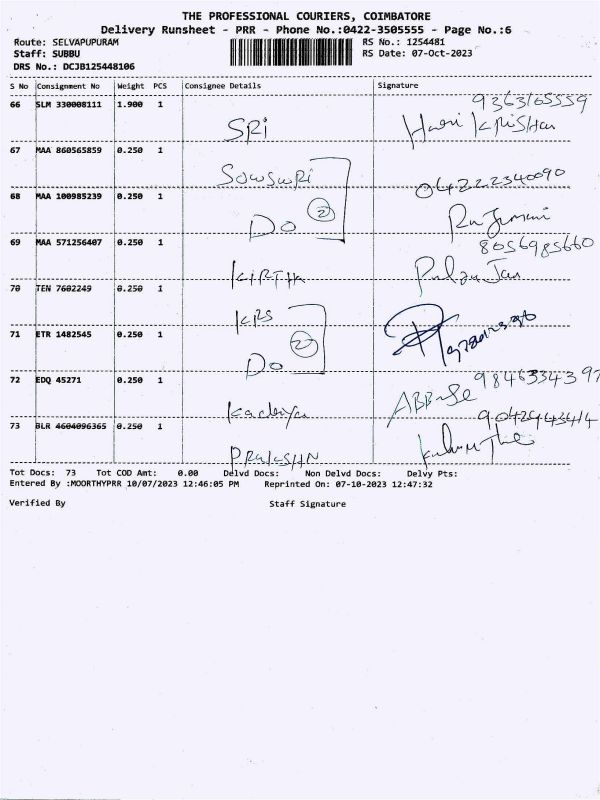 THE PROFESSIONAL COURIERS, COIMBATORE
Delivery Runsheet - PRR - Phone No.:0422-3505555 - Page No.:6
Route: SELVAPUPURAM RS No.: 1254481
Staff: SUBBU RS Date: 07-Oct-2023
DRS No.: DCJB125448106
S No Consignment No Weight PCS Consignee Details Signature
66 SLM 330008111 1.900 1 9363165559
SRI Hari Krishan
67 MAA 860565859 0.250 1
SOWSWRI 042222340090
68 MAA 100985239 0.250 1
DO 2
69 MAA 571256407 0.250 1 8056985660
KIRTHK
70 TEN 7602249 0.250 1
KRS
71 ETR 1482545 0.250 1
DO 2
72 EDQ 45271 0.250 1
73 BLR 4604096365 0.250 1
Tot Docs: 73 Tot COD Amt: 0.00 Delvd Docs: Non Delvd Docs: Delvy Pts:
Entered By :MOORTHYPRR 10/07/2023 12:46:05 PM Reprinted On: 07-10-2023 12:47:32
Verified By Staff Signature